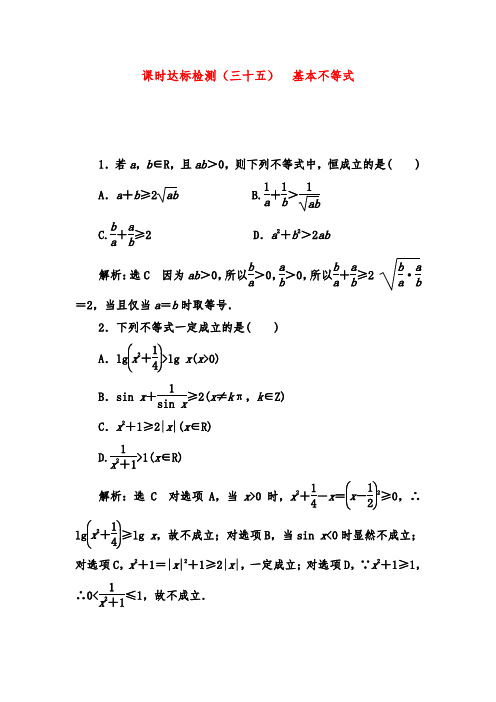 课时达标检测（三十五） 基本不等式
1．若a，b∈R，且ab＞0，则下列不等式中，恒成立的是( )
A．a＋b≥2√ab B.1/a＋1/b＞1/√ab
C.b/a＋a/b≥2 D．a²＋b²＞2ab
解析：选C 因为ab＞0，所以b/a＞0，a/b＞0，所以b/a＋a/b≥2 √(b/a·a/b)
＝2，当且仅当a＝b时取等号．
2．下列不等式一定成立的是( )
A．lg(x²＋1/4)>lg x(x>0)
B．sin x＋1/sin x≥2(x≠kπ，k∈Z)
C．x²＋1≥2|x|(x∈R)
D.1/(x²＋1)>1(x∈R)
解析：选C 对选项A，当x>0时，x²＋1/4－x＝(x－1/2)²≥0，∴
lg(x²＋1/4)≥lg x，故不成立；对选项B，当sin x<0时显然不成立；
对选项C，x²＋1＝|x|²＋1≥2|x|，一定成立；对选项D，∵x²＋1≥1，
∴0<1/(x²＋1)≤1，故不成立．